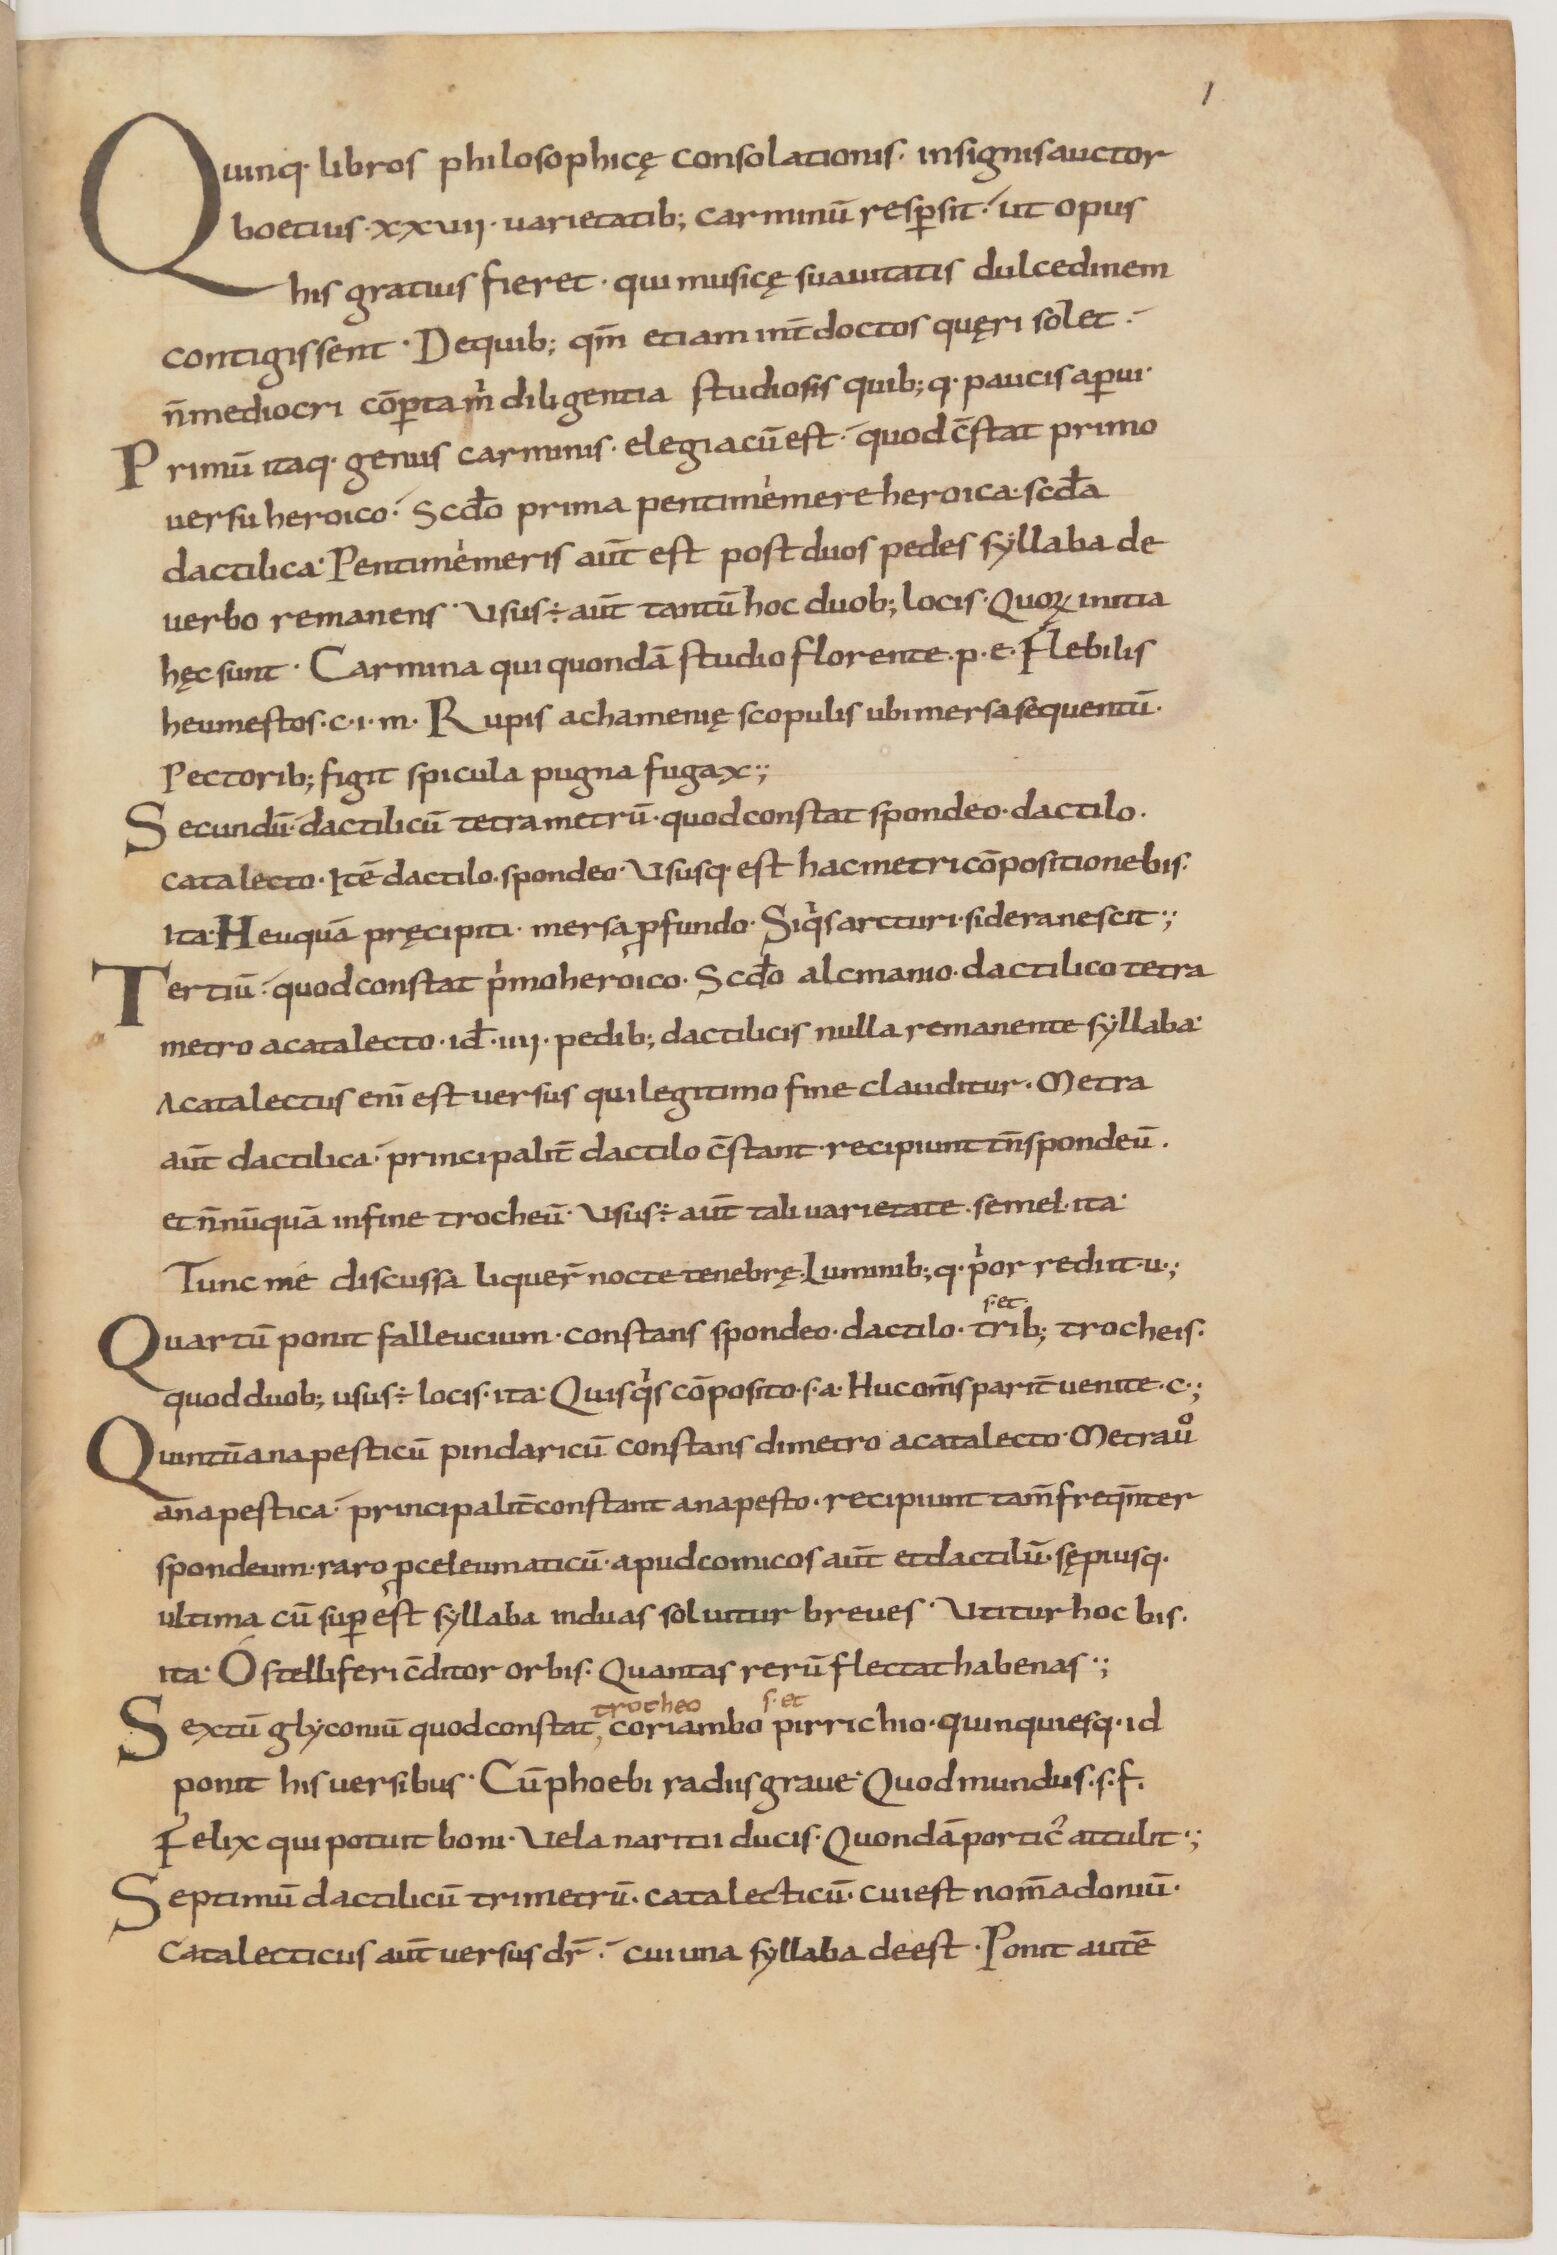 1
Quinq· libros philosophicę consolationis· insignis auctor
boetius·xxvii·uarietatib; carminū resꝑsit· ut opus
his gratius fieret· qui musicę suauitatis dulcedinem
contigissent· De quib; qm̄ etiam int̄ doctos quęri solet·
n̄ mediocri cōꝑta m̓ diligentia studiosis quib;q· paucis aꝑui·
Primū itaq· genus carminis· elegiacū est· quod c̄stat primo
uersu heroico· Scd̄o prima pentimemere heroica· scd̄a
dactilica· Pentimemeris aūt est post duos pedes syllaba de
uerbo remanens· Usus ÷ aūt tantū hoc duob; locis· Quoꝝ initia
hęc sunt· Carmina qui quondā studio florente·p·e· Flebilis
heu mestos·c·i·m· Rupis achamenię scopulis ubi mersa sequentū·
Pectorib; figit spicula pugna fugax·;
Secundū· dactilicū tetrametrū· quod constat spondeo·dactilo·
catalecto· Itē dactilo·spondeo· Ususq· est hac metri cōpositione bis·
ita· Heu quā pręcipiti· mersa ꝓfundo· Siq̓s arcturi·sidera nescit·;
Tertiū· quod constat p̓mo heroico· Scd̄o alcmanio·dactilico tetra
metro acatalecto·id̄·iiij·pedib; dactilicis nulla remanente syllaba·
Acatalectus enī est uersus qui legitimo fine clauditur· Metra
aūt dactilica· principalit̄ dactilo c̄stant·recipiunt tn̄ spondeū·
et n̄nūquā in fine trocheū· Usus ÷ aūt tali uarietate·semel·ita·
Tunc me discussa liquer̄ nocte tenebrę· Luminib;q· p̓or rediit·u·;
Quartū ponit falleucium·constans spondeo·dactilo· s·et· trib; trocheis·
quod duob; usus ÷ locis·ita· Quisq̓s cōposito·s·a· Huc om̄s parit̄ uenite·c·;
Quintū anapesticū pindaricū constans dimetro acatalecto· Metra uº
anapestica· principalit̄ constant anapesto·recipiunt tam̄ freq̄nter
spondeum·raro ꝓceleumaticū·apud comicos aūt et dactilū·sępiusq·
ultima cū suꝑest syllaba in duas soluitur breues· Utitur hoc bis·
ita· O stelliferi c̄ditor orbis· Quantas rerū flectat habenas·;
Sextū glyconiū quod constat, trocheo coriambo s·et pirrichio·quinquiesq·id
ponit his uersibus· Cū phoebi radiis graue· Quod mundus·s·f·
Felix qui potuit boni· Uela naritii ducis· Quondā portic᾽ attulit·;
Septimū dactilicū trimetrū·catalecticū·cui est nom̄ adoniū·
Catalecticus aūt uersus dr̄· cui una syllaba deest· Ponit autē